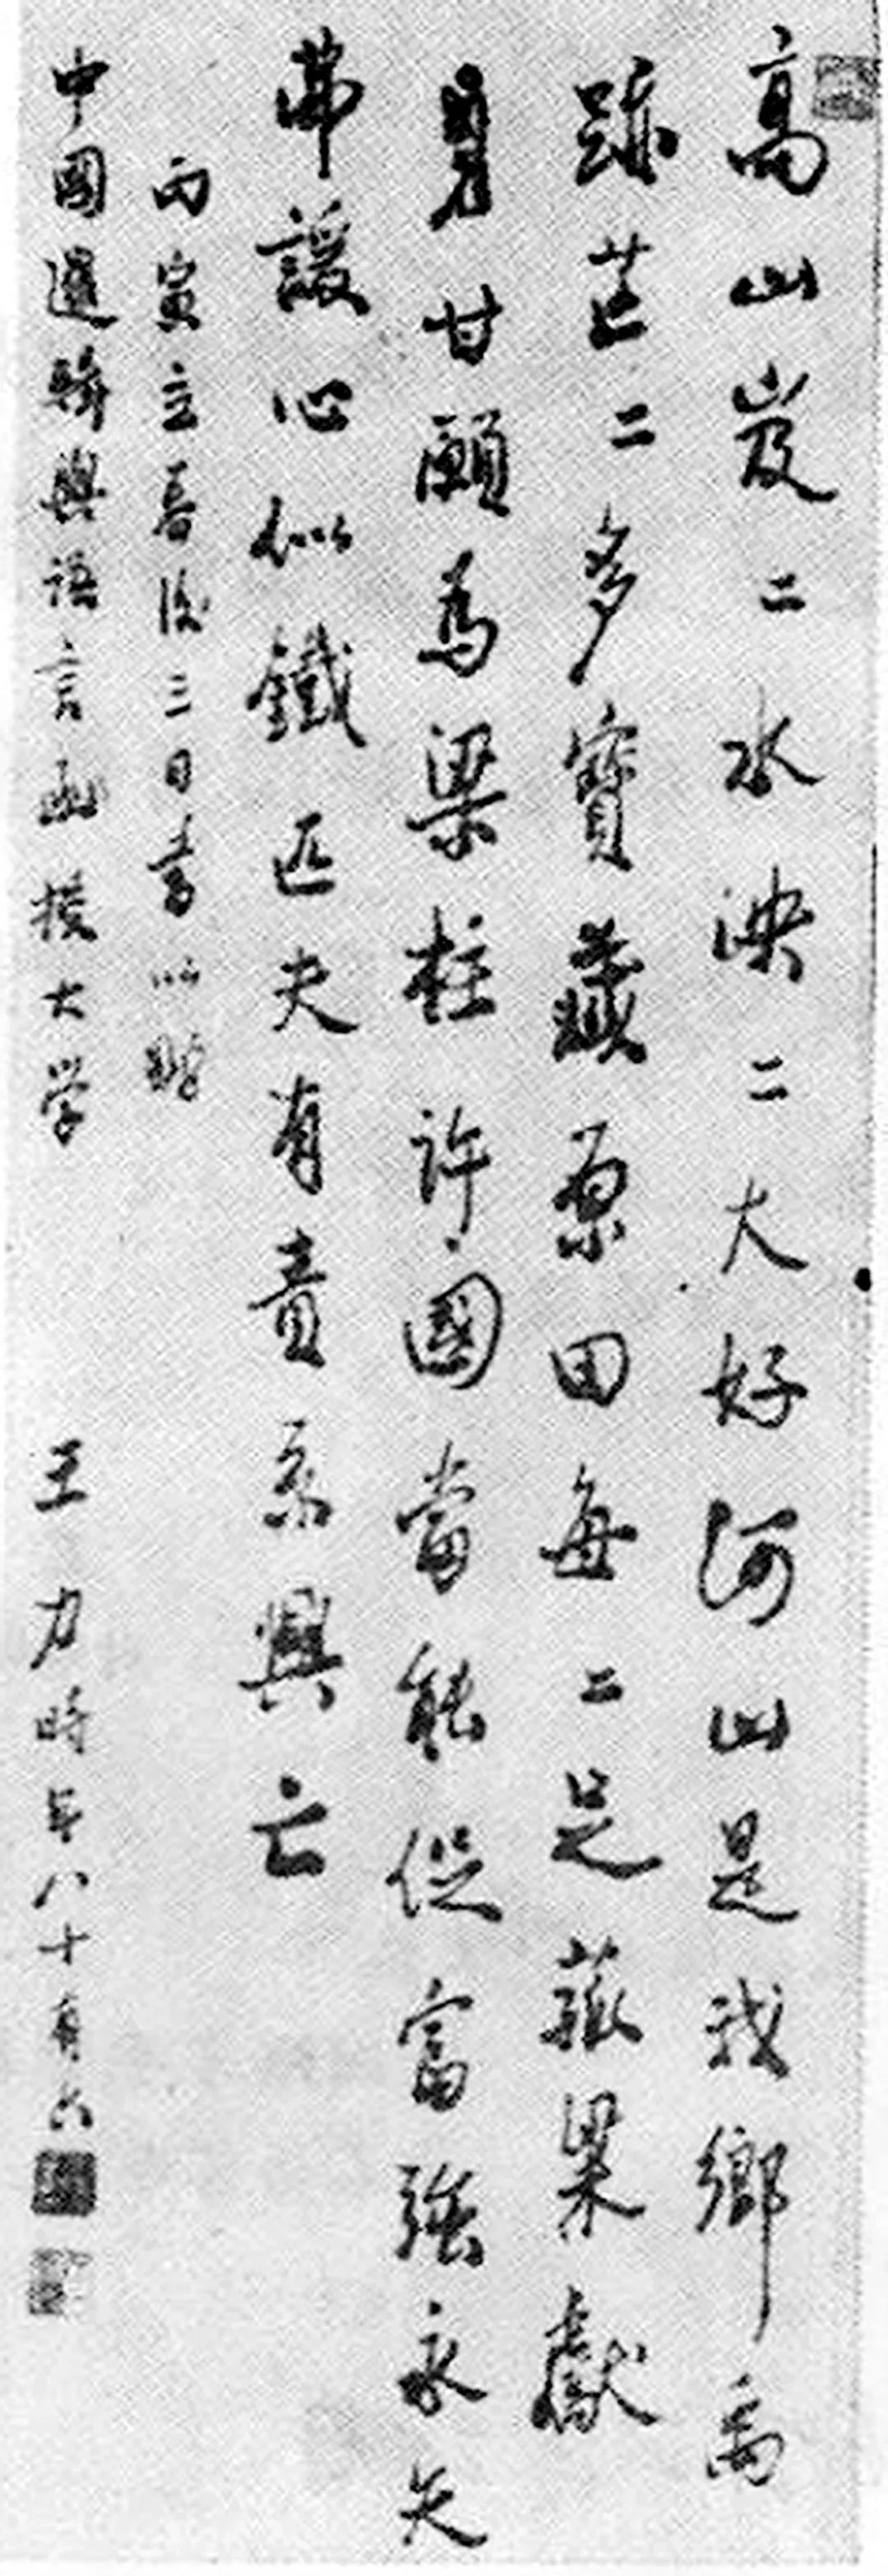 高山岌二水泱二大好河山是我鄉禹
跡芒二多寶藏原田每二足菰粱獻
身甘願為梁柱許國當能促富強永矢
弗諼心似鐵匹夫有責系興亡
丙寅立春後三日書以贈
中國邏輯與語言函授大学
王力時年八十有六